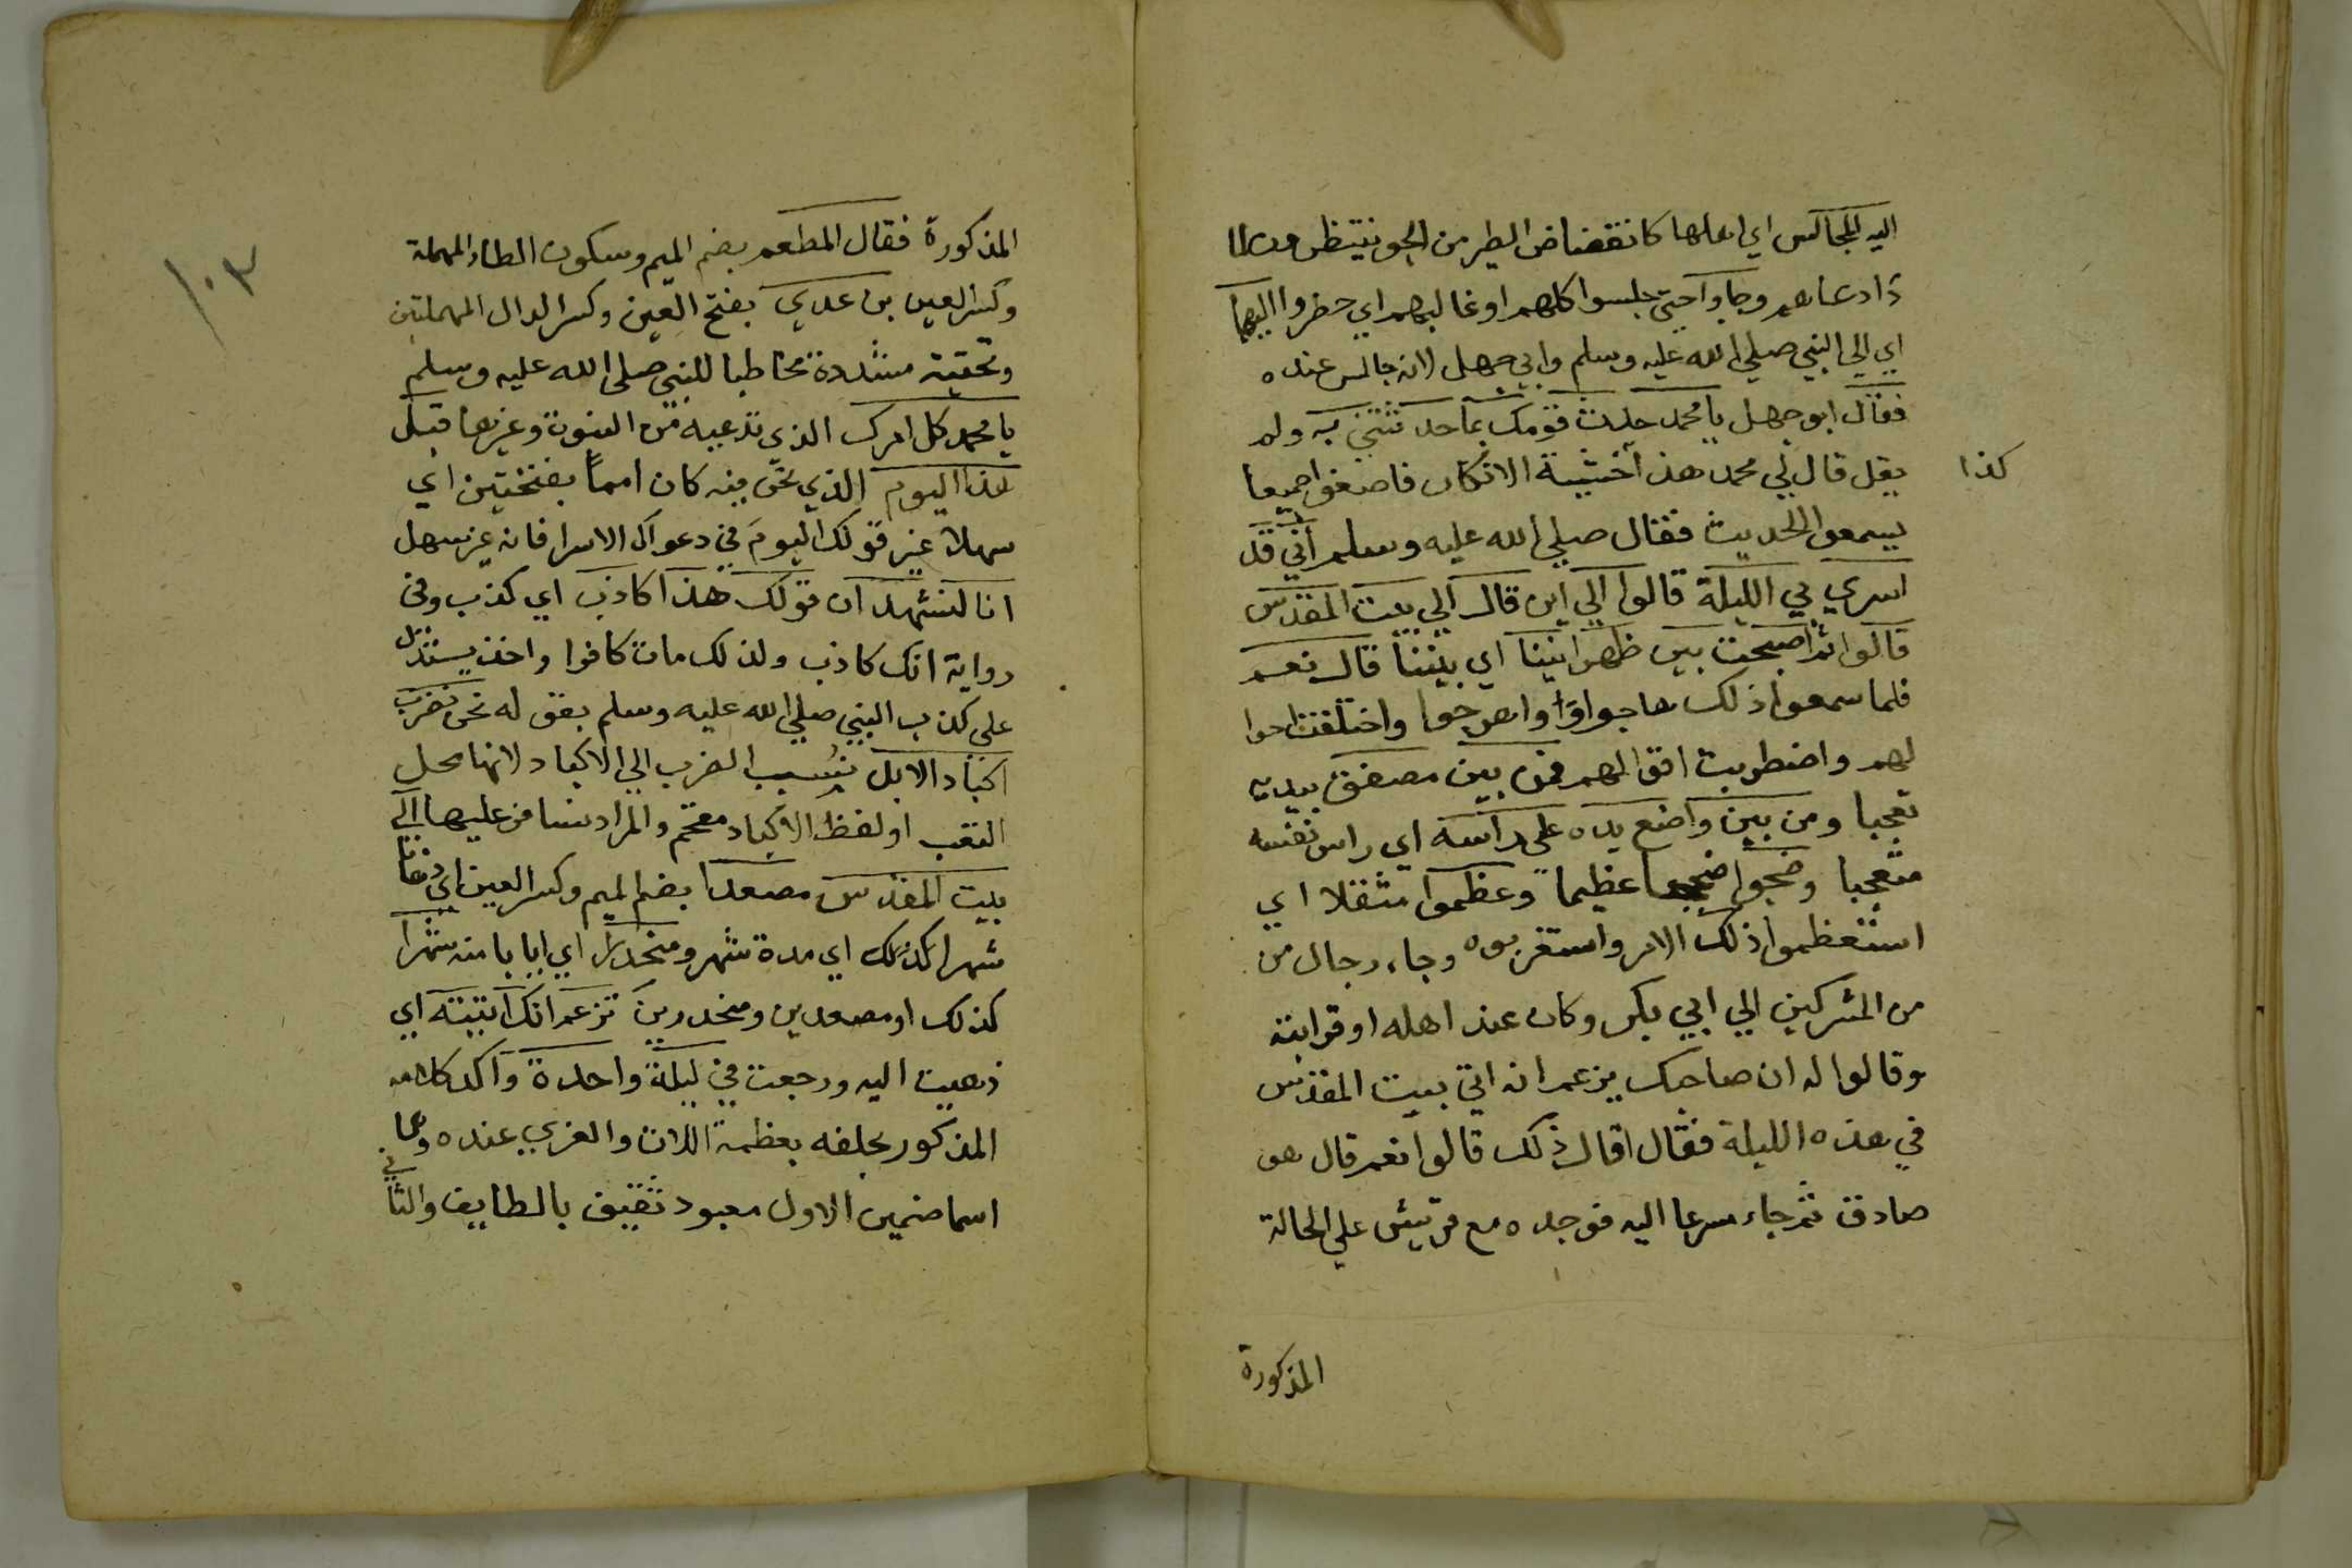 اليه المجالس اي اهلها كانقضاض الطير من الجو ينتظرون
ذا دعاهم وجاوا حتى جلسوا كلهم او غالبهم اي حضروا اليهما
اي الي النبي صلي الله عليه وسلم وابي جهل لانه جالس عنده
فقال ابو جهل يا محمد حدث قومك بما حدثتني به ولم
يقل قال لي محمد هذا خشية الانكار فاصغوا جميعا
كذا
يسمعوا الحديث فقال صلي الله عليه وسلم اني قد
اسري بي الليلة قالوا الي اين قال الي بيت المقدس
قالوا ثم اصبحت بين ظهرانينا اي بيننا قال نعم
فلما سمعوا ذلك هاجوا وا واهرجوا واختلفت احوا
لهم واضطربت اقوالهم فمن بين مصفق بيديه
تعجبا ومن بين واضع يده علي راسه اي راس نفسه
متعجبا وضجوا ضجيجا عظيما وعظموا مثقلا اي
استعظموا ذلك الامر واستغربوه وجاء رجال من
من المشركين الي ابي بكر وكان عند اهله او قرابته
وقالوا له ان صاحبك يزعم انه اتي بيت المقدس
في هذه الليلة فقال اقال ذلك قالوا نعم قال هو
صادق ثم جاء مسرعا اليه فوجده مع قريش علي الحالة
المذكورة
١٠٣
المذكورة فقال المطعم بضم الميم وسكون الطاء المهملة
وكسر العين بن عدي بفتح العين وكسر الدال المهملتين
وتحتية مشددة مخاطبا للنبي صلي الله عليه وسلم
يا محمد كل امرك الذي تدعيه من النبوة وغيرها قبل
هذا اليوم الذي نحن فيه كان امما بفتحتين اي
سهلا غير قولك اليوم في دعواك الاسرا فانه غير سهل
انا لنشهد ان قولك هذا كاذب اي كذب وفي
رواية انك كاذب ولذلك مات كافرا واخذ يستدل
علي كذب النبي صلي الله عليه وسلم بقوله نحن نضرب
اكباد الابل نسب الضرب الي الاكباد لانها محل
التعب او لفظ الاكباد مقحم والمراد نسافر عليها الي
بيت المقدس مصعدا بضم الميم وكسر العين اي ذهابا
شهرا كذلك اي مدة شهر ومنحدرا اي ايابا منه شهرا
كذلك او مصعدين ومنحدرين تزعم انك اتيته اي
ذهبت اليه ورجعت في ليلة واحدة واكد كلامه
المذكور بحلفه بعظمة اللات والعزي عنده وهما
اسما صنمين الاول معبود ثقيف بالطايف والثاني